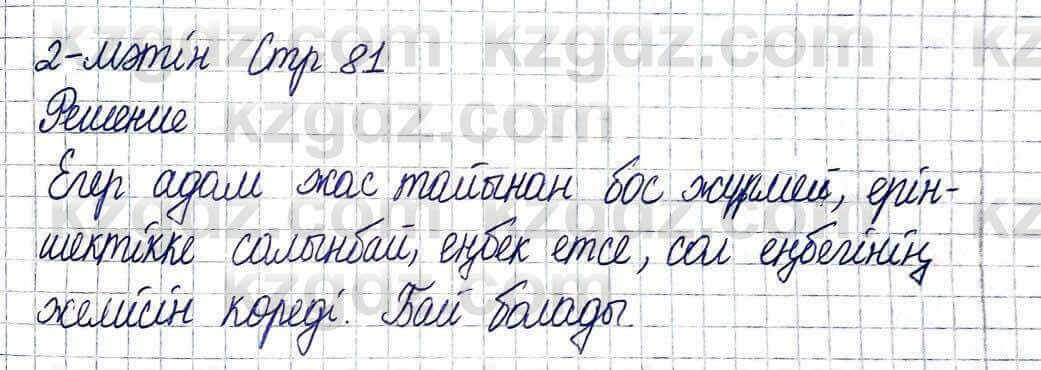 2-мәтін Стр 81
Решение
Егер адам жас тайынан бос жүрмей, ерін-
шектікке салынбай, еңбек етсе, сол еңбегінің
желісін көреді. Бай болады.